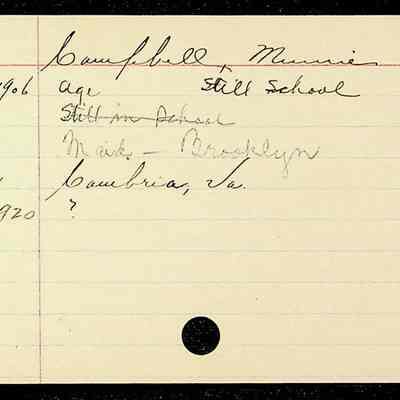 Campbell, Minnie
1906 age Still School
Still in School
Maid - Brooklyn
Cambria, Va.
1920 ?